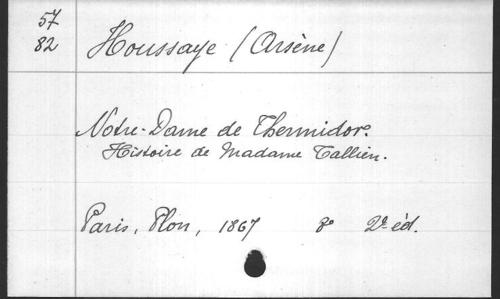 57
82
Houssaye (Arsène)
Notre-Dame de Thermidor.
Histoire de Madame Tallien.
Paris, Plon, 1867 8° 2e éd.